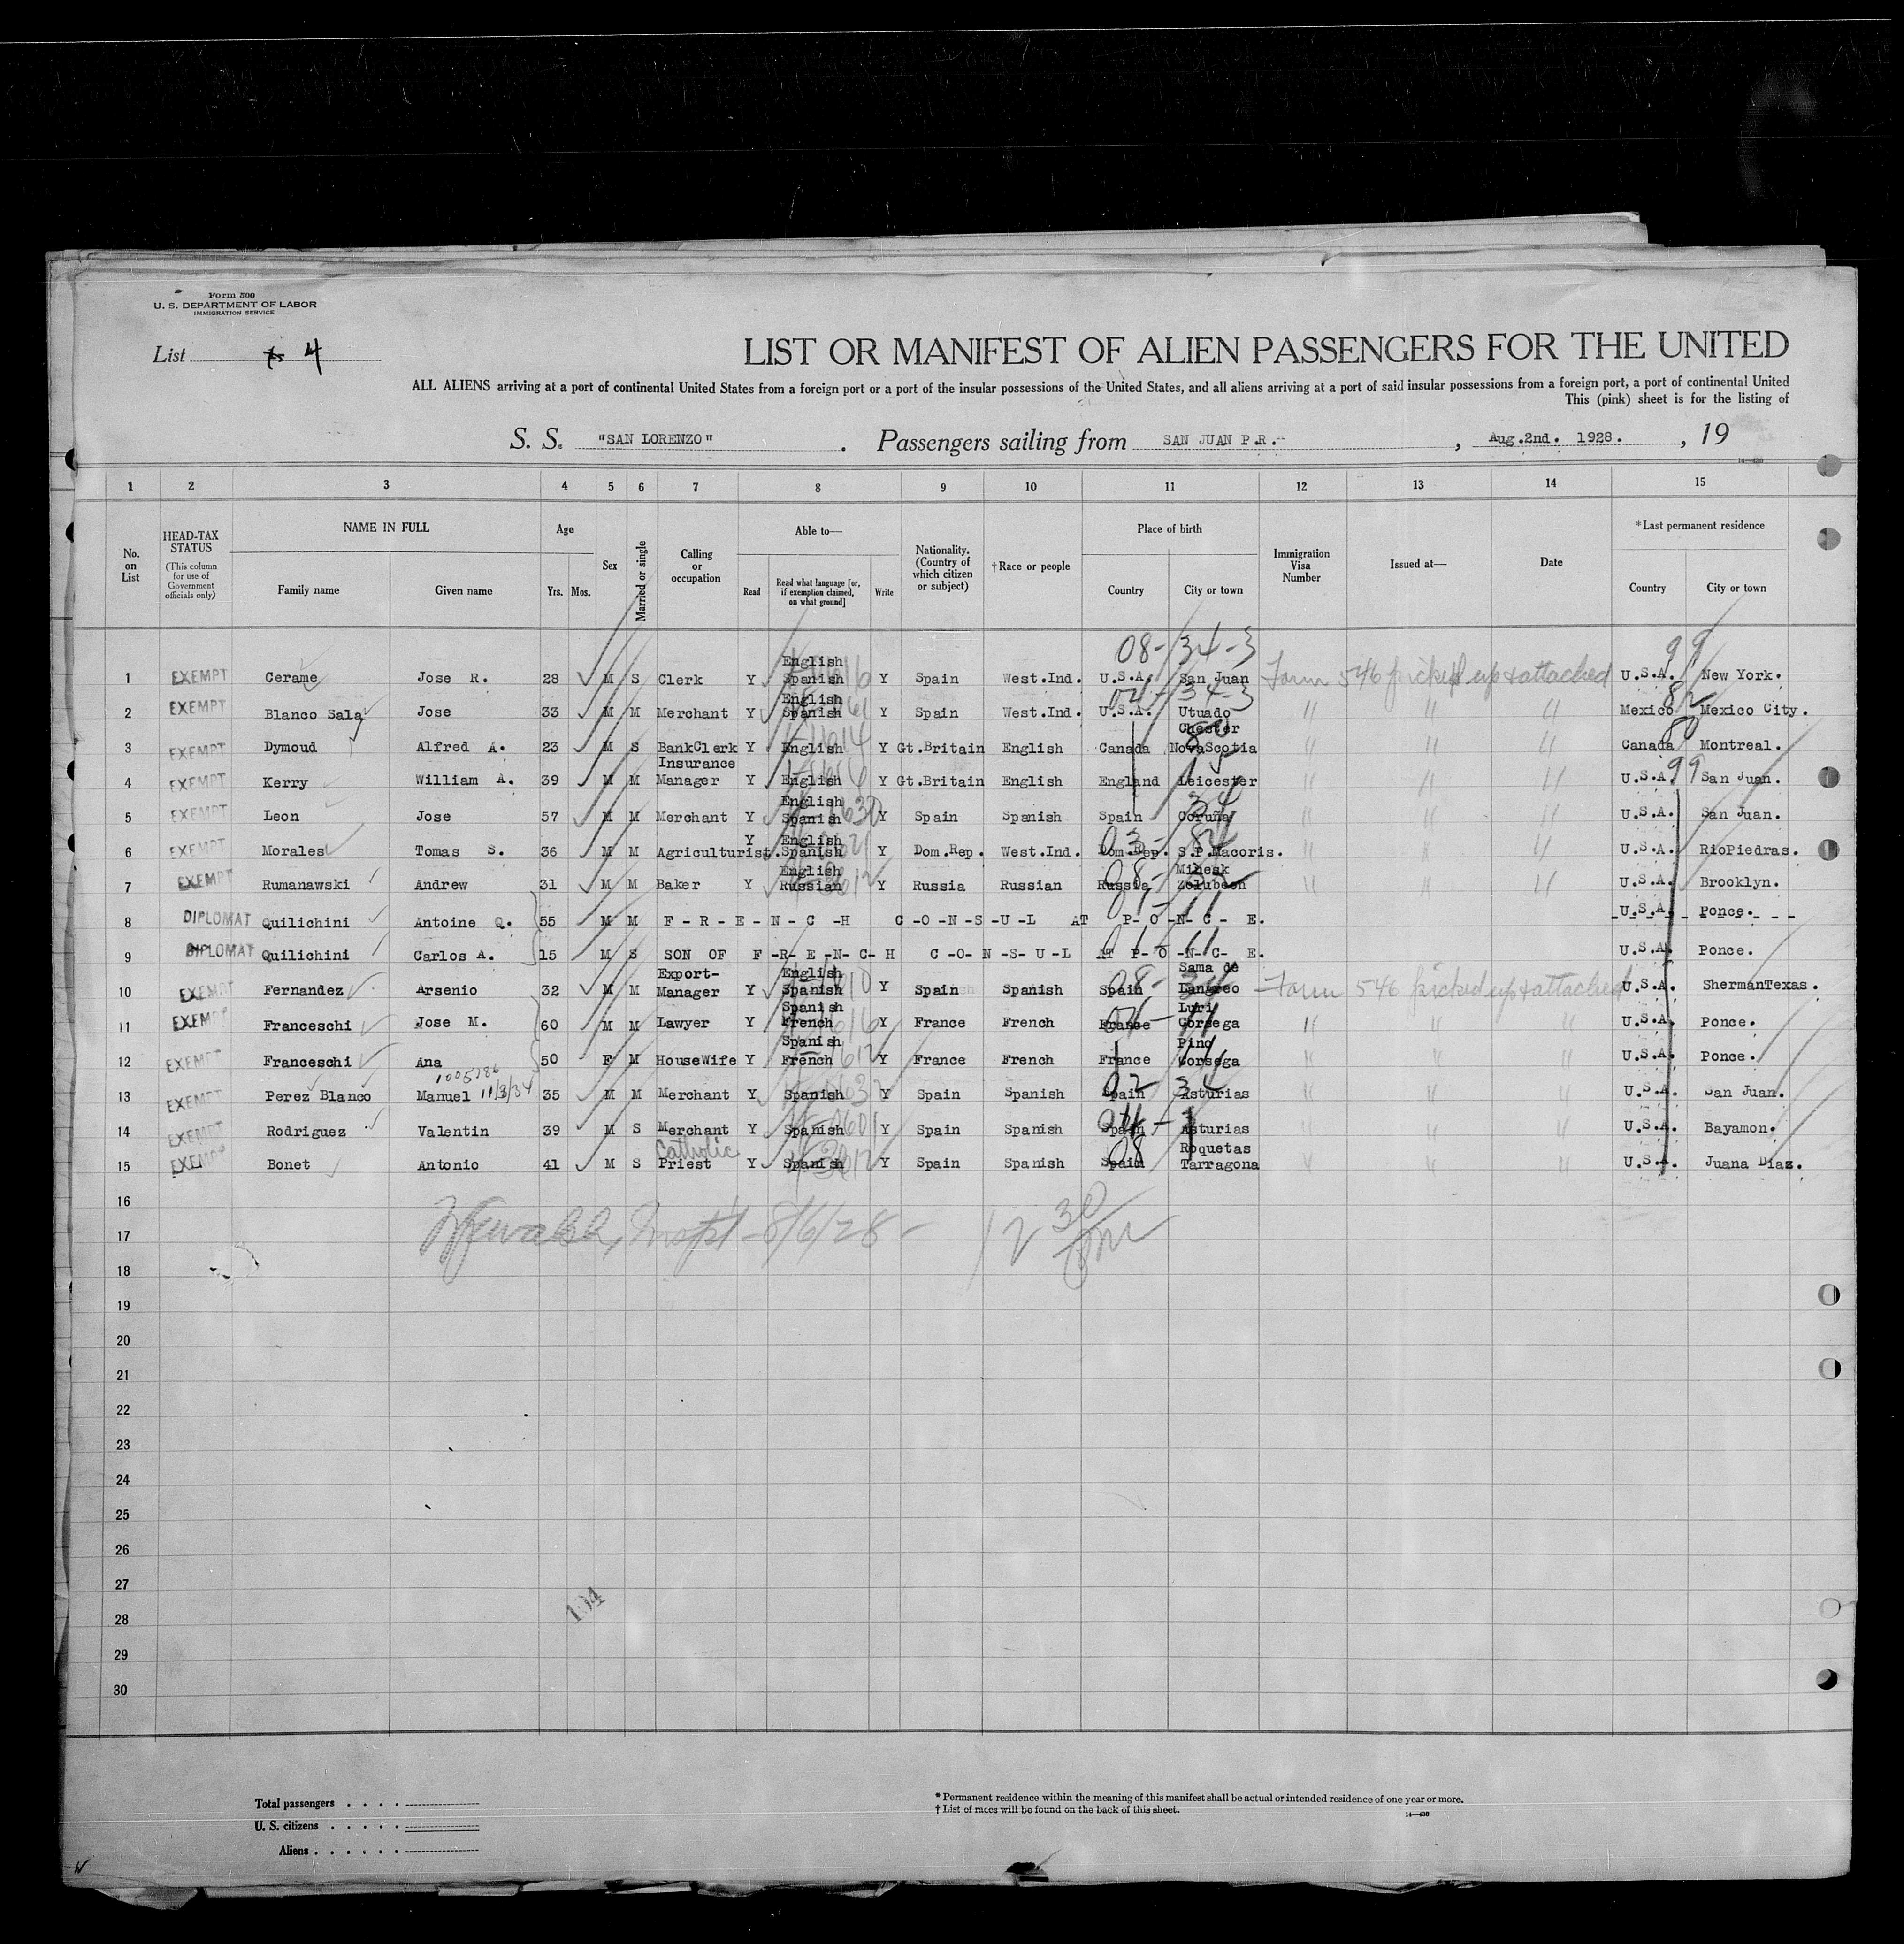 Form 500
U. S. DEPARTMENT OF LABOR
IMMIGRATION SERVICE
List 4
LIST OR MANIFEST OF ALIEN PASSENGERS FOR THE UNITED
ALL ALIENS arriving at a port of continental United States from a foreign port or a port of the insular possessions of the United States, and all aliens arriving at a port of said insular possessions from a foreign port, a port of continental United
This (pink) sheet is for the listing of
S. S. "SAN LORENZO". Passengers sailing from SAN JUAN P.R.-, Aug.2nd. 1928., 19
14-430
1 2 3 4 5 6 7 8 9 10 11 12 13 14 15
No. on List
HEAD-TAX STATUS (This column for use of Government officials only)
NAME IN FULL Family name Given name
Age Yrs. Mos.
Sex
Married or single
Calling or occupation
Able to— Read Read what language [or, if exemption claimed, on what ground] Write
Nationality. (Country of which citizen or subject)
†Race or people
Place of birth Country City or town
Immigration Visa Number
Issued at—
Date
*Last permanent residence Country City or town
08-34-3 99
1 EXEMPT Cerame Jose R. 28 M S Clerk Y English Spanish Y Spain West.Ind. U.S.A. San Juan Form 546 picked up & attached U.S.A. New York.
04-34-3 82
2 EXEMPT Blanco Sala Jose 33 M M Merchant Y English Spanish Y Spain West.Ind. U.S.A. Utuado " " " Mexico Mexico City.
3 EXEMPT Dymoud Alfred A. 23 M S BankClerk Y English Y Gt.Britain English Canada Chester NovaScotia " " " Canada Montreal.
4 EXEMPT Kerry William A. 39 M M Insurance Manager Y English Y Gt.Britain English England Leicester " " " U.S.A. San Juan.
5 EXEMPT Leon Jose 57 M M Merchant Y English Spanish Y Spain Spanish Spain Coruña " " " U.S.A. San Juan.
6 EXEMPT Morales Tomas S. 36 M M Agriculturist. Y English Spanish Y Dom.Rep. West.Ind. Dom.Rep. S.P.Macoris. " " " U.S.A. RioPiedras.
7 EXEMPT Rumanawski Andrew 31 M M Baker Y English Russian Y Russia Russian Russia Minesk " " " U.S.A. Brooklyn.
8 DIPLOMAT Quilichini Antoine Q. 55 M M F-R-E-N-C-H C-O-N-S-U-L AT P-O-N-C-E. U.S.A. Ponce.
9 DIPLOMAT Quilichini Carlos A. 15 M S SON OF F-R-E-N-C-H C-O-N-S-U-L AT P-O-N-C-E. U.S.A. Ponce.
10 EXEMPT Fernandez Arsenio 32 M M Export-Manager Y English Spanish Y Spain Spanish Spain Sama de Langreo Form 546 picked up & attached U.S.A. ShermanTexas.
11 EXEMPT Franceschi Jose M. 60 M M Lawyer Y Spanish French Y France French France Luri Corsega " " " U.S.A. Ponce.
12 EXEMPT Franceschi Ana 50 F M HouseWife Y Spanish French Y France French France Pino Corsega " " " U.S.A. Ponce.
13 EXEMPT Perez Blanco Manuel 11/3/34 35 M M Merchant Y Spanish Y Spain Spanish Spain Asturias " " " U.S.A. San Juan.
14 EXEMPT Rodriguez Valentin 39 M S Merchant Y Spanish Y Spain Spanish Spain Asturias " " " U.S.A. Bayamon.
15 EXEMPT Bonet Antonio 41 M S Catholic Priest Y Spanish Y Spain Spanish Spain Roquetas Tarragona " " " U.S.A. Juana Diaz.
16
17 8/6/28- 12 30 PM
18
19
20
21
22
23
24
25
26
27
28
29
30
104
Total passengers . . . .
U. S. citizens . . . . .
Aliens . . . . . .
* Permanent residence within the meaning of this manifest shall be actual or intended residence of one year or more.
† List of races will be found on the back of this sheet.
14-430